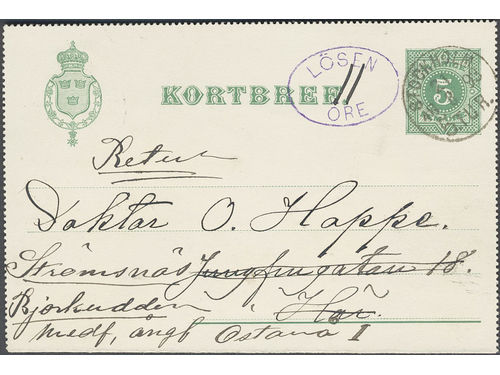 KORTBREF
LÖSEN
11
ÖRE
5
Retur
Doktor O. Hoppe.
Strömsnäs Jungfrugatan 18.
Björkudden " Här.
medf, ångf Östanå I